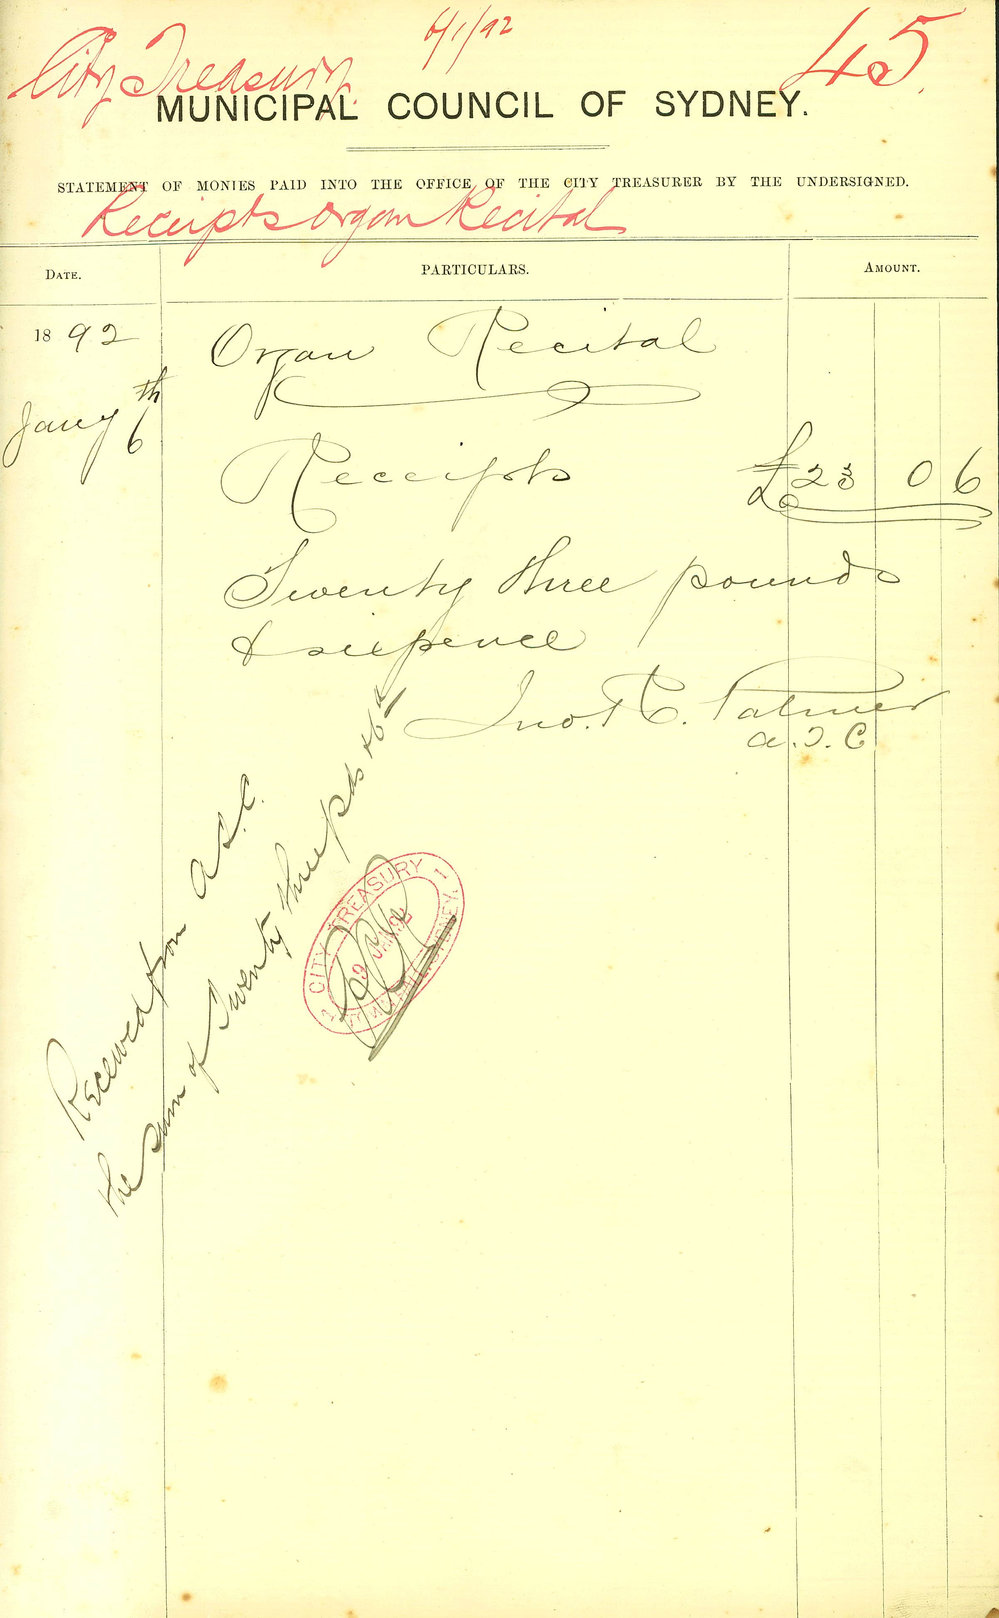 City Treasury. 6/1/92 45.
MUNICIPAL COUNCIL OF SYDNEY.
STATEMENT OF MONIES PAID INTO THE OFFICE OF THE CITY TREASURER BY THE UNDERSIGNED.
Receipts Organ Recital
DATE. PARTICULARS. AMOUNT.
1892 Organ Recital
Jany 6th
Receipts £23 0 6
Twenty three pounds
& sixpence
Jno. R. C. Palmer
a. T. C
Received from
the sum of Twenty three pds & 6d
CITY TREASURY
JAN. 92
SYDNEY.